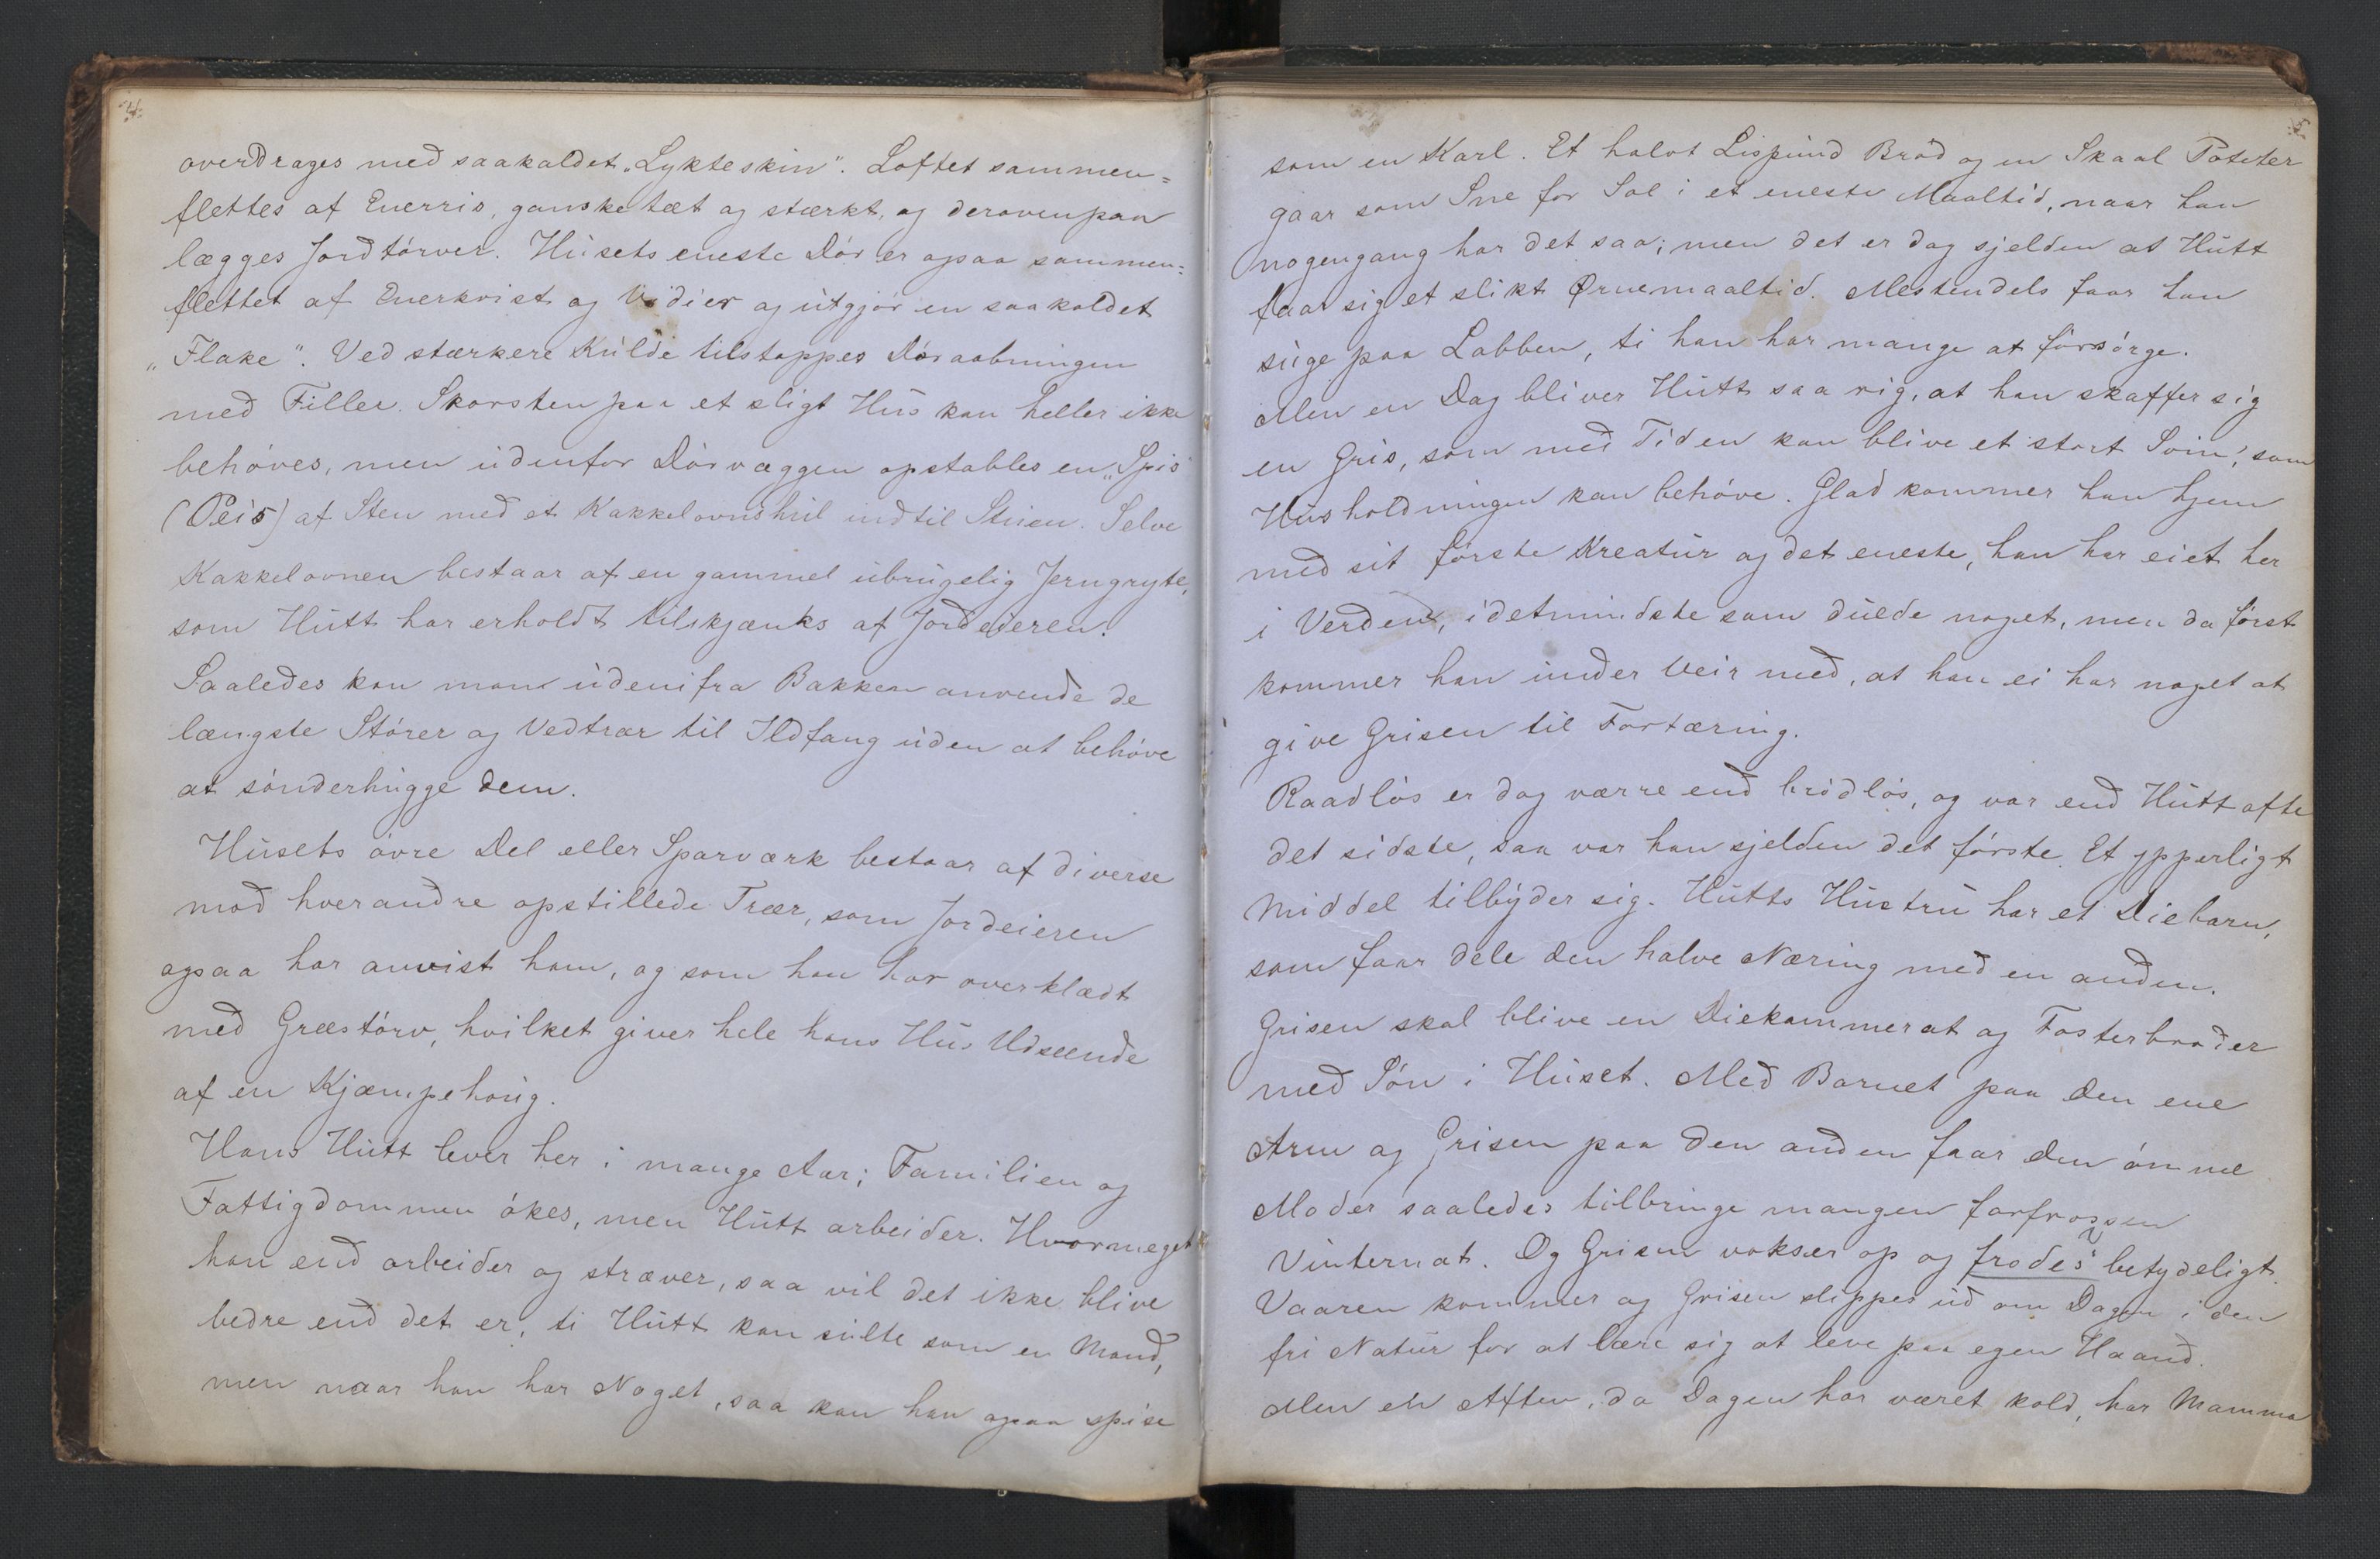 4.
overdrages med saakaldet „Lykteskin". Loftet sammen=
flettes af Enerris, ganske tæt og stærkt, og derovenpaa
lægges Jordtørver. Husets eneste Dør er ogsaa sammen=
flettet af Enerkvist og Vidier og utgjør en saakaldet
„Flake". Ved stærkere Kulde tilstoppes Døraabningen
med Filler. Skorsten paa et sligt Hus kan heller ikke
behøves, men udenfor Dørvæggen opstables en „Spis"
(Peis) af Sten med et Kakkelovnshul indtil Stuen. Selve
Kakkelovnen bestaar af en gammel ubrugelig Jerngryte,
som Hutt har erholdt tilskjænks af Jordeieren.
Saaledes kan man udenifra Bakken anvende de
længste Stører og Vedtrær til Ildfang uden at behøve
at sønderhugge dem.
Husets øvre Del eller Sparværk bestaar af diverse
mod hverandre opstillede Trær, som Jordeieren
ogsaa har anvist ham, og som han har overklædt
med Græstørv, hvilket giver hele hans Hus Udseende
af en Kjæmpehoug.
Hans Hutt lever her i mange Aar; Familien og
Fattigdommen økes, men Hutt arbeider. Hvormeget
han end arbeider og stræver, saa vil det ikke blive
bedre end det er, ti Hutt kan sulte som en Mand,
men naar han har Noget, saa kan han ogsaa spise
5.
som en Karl. Et halvt Lispund Brød og en Skaal Poteter
gaar som Sne for Sol i et eneste Maaltid, naar han
nogengang har det saa; men det er dog sjelden at Hutt
faar sig et slikt Ørnemaaltid. Mestendels faar han
suge paa Labben, ti han har mange at forsørge.
Men en Dag bliver Hutt saa rig, at han skaffer sig
en Gris, som med Tiden kan blive et stort Svin, som
Husholdningen kan behøve. Glad kommer han hjem
med sit første Kreatur og det eneste, han har eiet her
i Verden, idetmindste som duede noget, men da først
kommer han under Veir med, at han ei har noget at
give Grisen til Fortæring.
Raadløs er dog værre end brødløs, og var end Hutt ofte
det sidste, saa var han sjelden det første. Et ypperligt
Middel tilbyder sig. Hutts Hustru har et Diebarn,
som faar dele den halve Næring med en anden.
Grisen skal blive en Diekammerat og Fosterbroder
med Søn i Huset. Med Barnet paa den ene
Arm og Grisen paa den anden faar den ømme
Moder saaledes tilbringe mangen forfrossen
Vinternat. Og Grisen vokser op og frodes betydeligt.
Vaaren kommer og Grisen slippes ud om Dagen i den
fri Natur for at lære sig at leve paa egen Haand.
Men en Aften, da Dagen har været kold, har Mamma